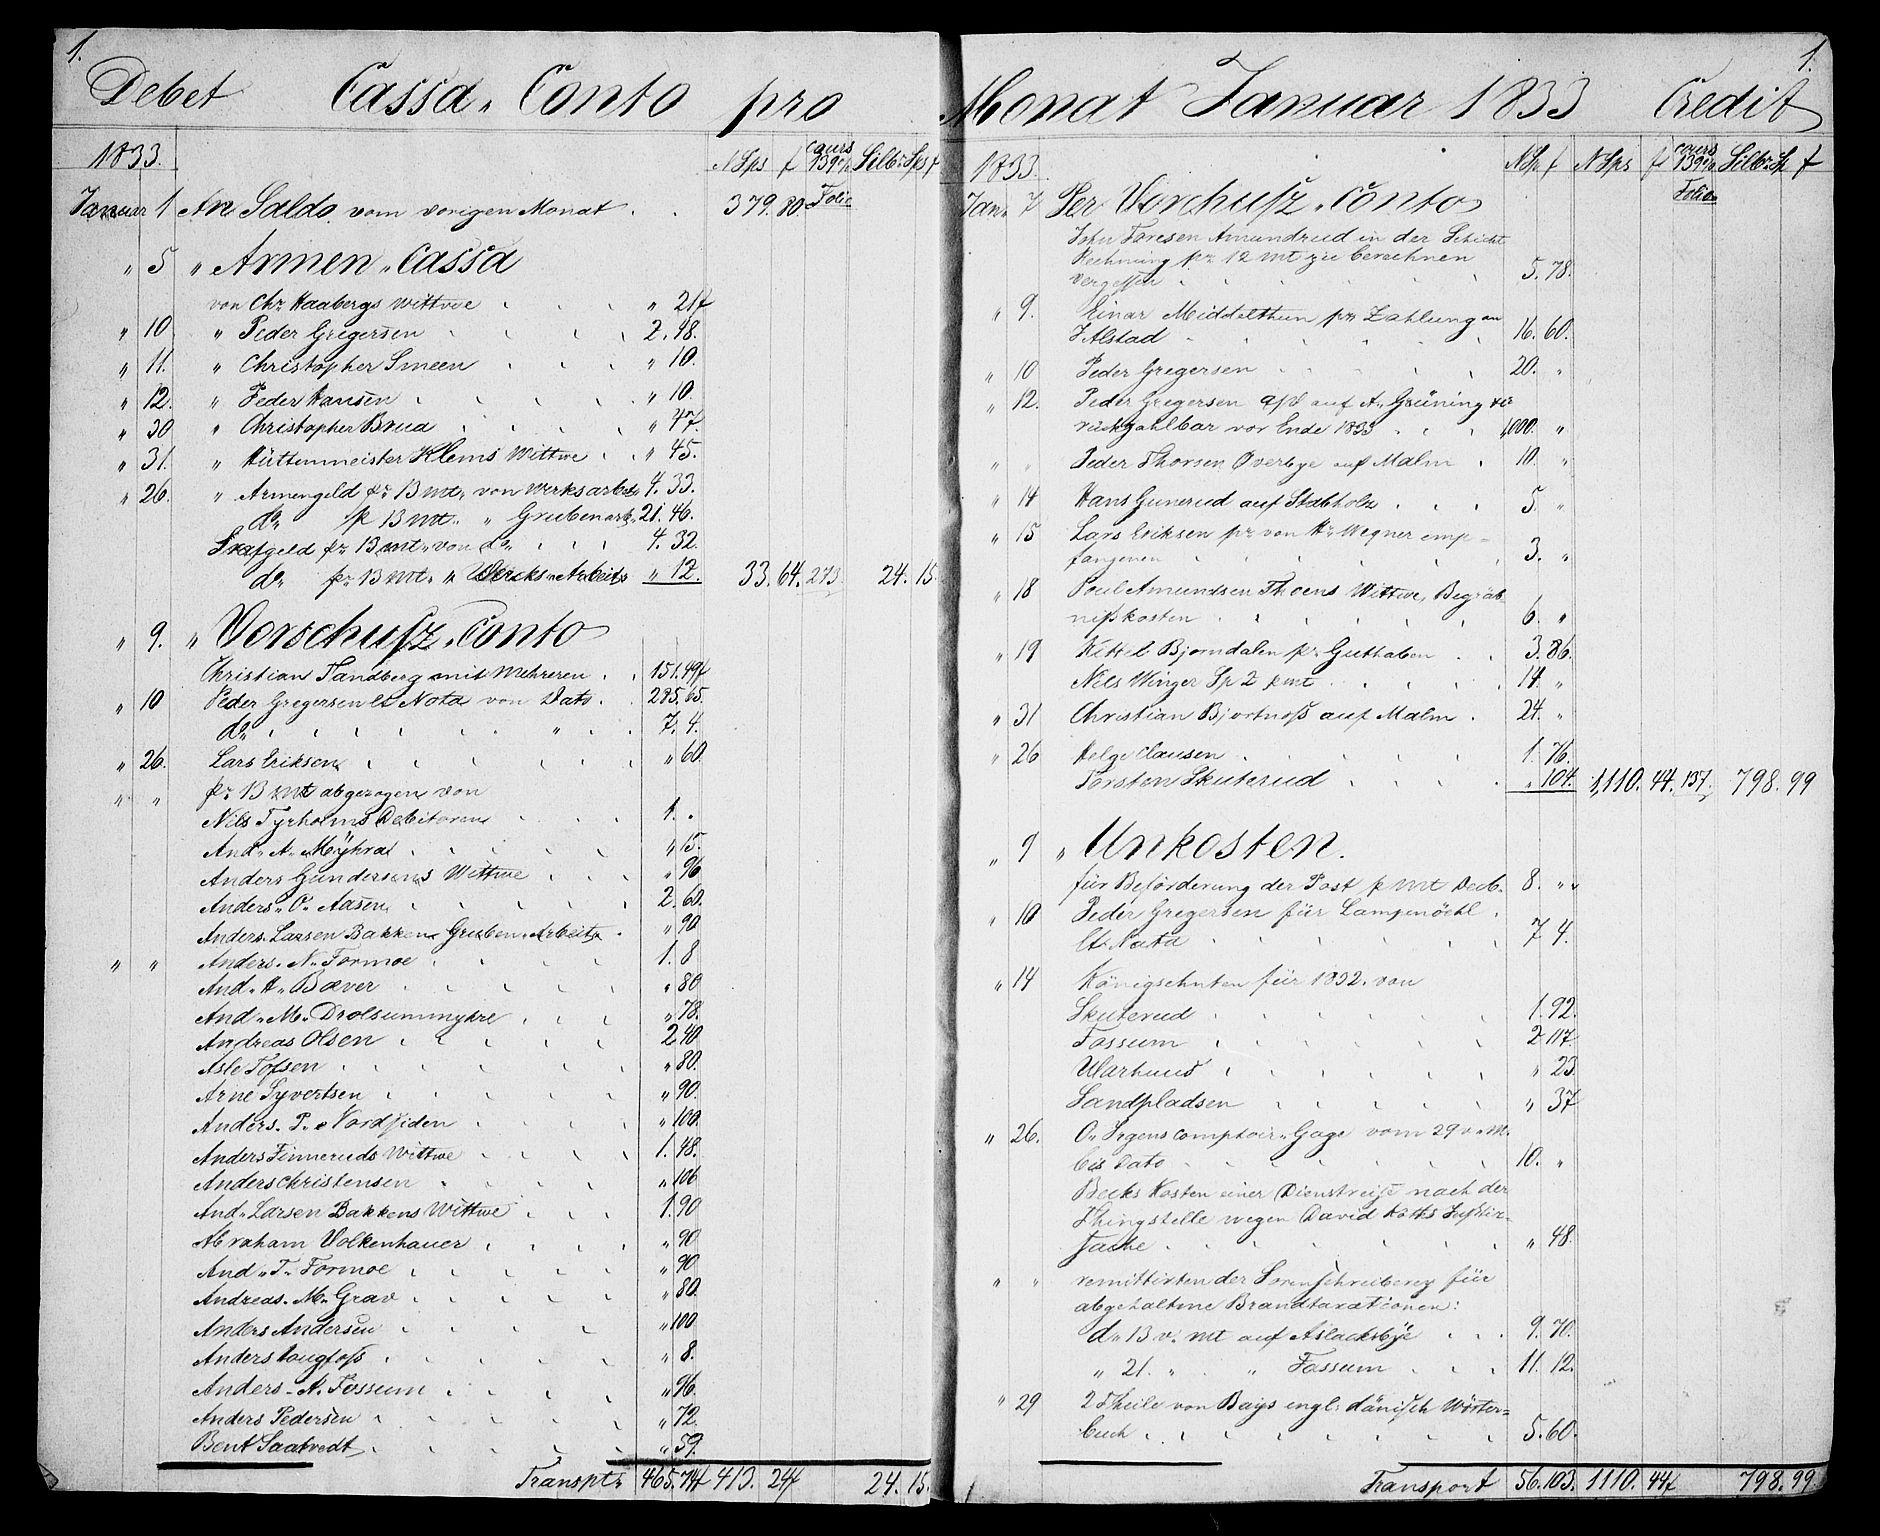 1.
Debet Cassa-Conto pro
1833. N Sps f cours 139 % Silb: Sps f
Januar 1 An Saldo vom vorigen Monat . . 379. 80. Folio
" 5 " Armen-Cassa
von Chr Haabergs Wittwe " 21f
" 10. " Peder Gregersen 2. 48.
" 11. " Christopher Smeen " 10.
" 12. " Peder Hansen " 10.
" 30 " Christopher Brua " 47.
" 31. " Hüttenmeister Klems Wittwe " 45.
" 26. " Armengeld pr 13 mt. von Werksarbeit 4. 33.
do p 13 mt. " Grubenarb. 21. 46.
Strafgeld pr 13 mt. von do 4. 32.
do pr 13 mt. " Wercks-Arbeits " 12. 33. 64. 273. 24. 15.
" 9. " Vorschusz-Conto
Christian Tandberg mit Mehreren 151. 49f
" 10 Peder Gregersen lt Nota von Dato 285. 65.
do " 7. 4.
" 26. Lars Eriksen " 60
" " pr 13 mt abgezogen von
Nils Tyrholms Debitoren 1. .
And. A. Möyhra " 15.
Anders Gundersens Wittwe " 96
Anders. O. Aasen 2. 60.
Anders. Larsen Bakken Gruben-Arbeits " 90
" " Anders. N. Formoe 1. 8
And. H. Bæver " 80
And. M. Drolsummyhre " 78.
Andreas Olsen 2 40
Asle Tofsen " 80.
Arne Syvertsen " 90.
Anders. P. Nordsiden " 100.
Anders Finneruds Wittwe 1. 48.
Anders Christensen " 106
And. Larsen Bakkens Wittwe 1. 90
Abraham Volkenhauer " 90
And. T. Formoe " 90
Andreas. M. Grav " 80.
Anders Andersen " 100
Anders Hougfoss " 8.
Anders. A. Fossum " 96.
Anders Pedersen " 72.
Bent Saatvedt " 59.
Transptr 465. 74f 413. 24f 24. 15.
1.
Monat Januar 1833 Credit
1833. N Sp f N Sps f cours 139 % Silb: Sp f
Jan. 7 Per Vorchusz-Conto Folio
John Toresen Amundrud in der Schicht
Rechnung pr 12 mt zu berechnen
vergessen 5. 78.
" 9. Einar Middelthun pr Zahlung an
J Alstad 16. 60.
" 10 Peder Gregersen 20. "
" 12. Peder Gregersen a/c auf A. Grüning &c
rückzahlbar vor Ende 1833 1,000. "
" " Peder Thorsen Overbye auf Malm 10. "
" 14 Hans Gunerud auf Stabholz 5 "
" 15 Lars Eriksen pr von Hr Wegner emp-
fangenen 3. "
" 18 Poul Amundsen Thoens Wittwe, Begräb-
nisskosten 6. "
" 19 Kittel Bjorndalen pr Guthaben 3. 86.
Nils Winger Sp 2 p mt 14. "
" 31 Christian Bjortnoss auf Malm 24. "
" 26 Helge Clausen 1. 76.
Torsten Skuterud " 104. 1,110. 44. 137. 798. 99
" 9 " Unkosten.
für Beförderung der Post p mt Decb. 8. "
" 10 Peder Gregersen für Lampenöehl
lt. Nota 7 4.
" 14 Königzehnten für 1832. von
Skuterud 1. 92.
Fossum 2 117.
Ularhuus " 23
Sandpladsen " 37
" 26. O. Irgens comptoir-Gage vom 29 v. M.
bis Dato 10. "
Becks Kosten einer Dienstreise nach der
Thingstelle wegen David Kotts Justiz-
sache " 48.
" " remittirten der Sorenschreiberey für
abgehaltene Brandtaxationen:
d. 13 v. mt auf Aslacksbye 9. 70.
" 21. " " Fossum 11. 12.
" 29 2 Theile von Bays engl: dänisch Wörter=
buch 5. 60.
Transport 56. 103. 1110. 44f 798. 99